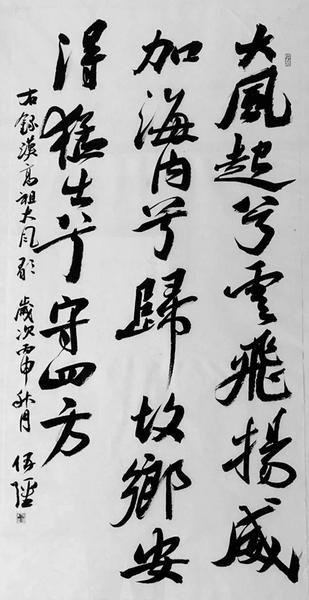 大風起兮雲飛揚威
加海內兮歸故鄉安
得猛士兮守四方
右錄漢高祖大風歌 歲次丙申秋月